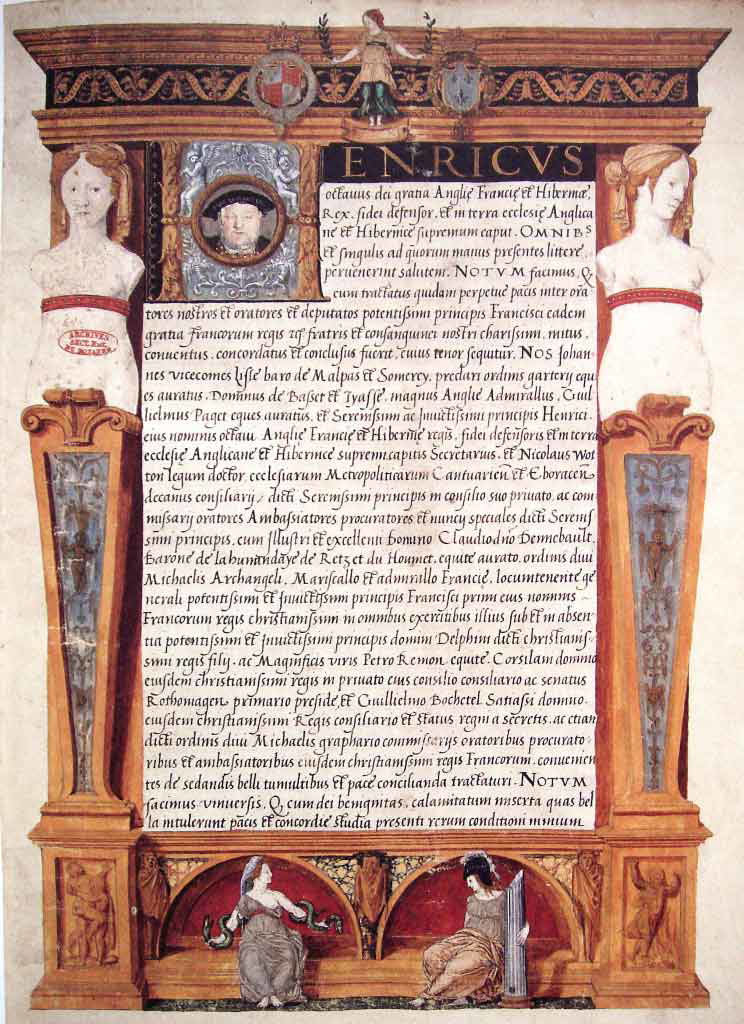 HENRICVS
octauus dei gratia Anglię Francię et Hibernię,
Rex, fidei defensor, et in terra ecclesię Anglica
nę et Hibernicę supremum caput. OMNIBS
et singulis ad quorum manus presentes litterę
peruenerint salutem. NOTVM facimus, Q
cum tractatus quidam perpetuę pacis inter ora
tores nostros et oratores et deputatos potentissimi principis Francisci eadem
gratia Francorum regis fratris et consanguinei nostri charissimi, initus,
conuentus, concordatus et conclusus fuerit, cuius tenor sequitur. NOS Johan-
ARCHIVES
SECT. HIST.
DU ROYAUME
nes vicecomes Lisle baro de Malpas et Somerey, preclari ordinis garterij equ
es auratus. Dominus de Basset et Tyasse, magnus Anglię Admirallus, Guil
lielmus Paget eques auratus, et Serenissimi ac Inuictissimi principis Henrici,
eius nominis octaui Anglię Francię et Hibernię regis, fidei defensoris et in terra
ecclesię Anglicanę et Hibernicę supremi capitis Secretarius, et Nicolaus Wot
ton legum doctor, ecclesiarum Metropoliticarum Cantuarien et Eboracen
decanus consiliarij, dicti Serenissimi principis in consilio suo priuato, ac com
missarij oratores Ambassiatores procuratores et nuncij speciales dicti Sereniss
simi principis, cum Illustri et excellenti Domino Claudio dno Dennebault,
Barone de la hunandaye de Retz et du Hommet, equite aurato, ordinis diui
Michaelis Archangeli, Mariscallo et admirallo Francię, locumtenente ge
nerali potentissimi et Inuictissimi principis Francisci primi eius nominis
Francorum regis christianissimi in omnibus exercitibus illius sub et in absen
tia potentissimi et Inuictissimi principis domini Delphini dicti christianis-
simi regis filij, ac Magnificis viris Petro Remon equite, Corsilam domino
eiusdem christianissimi regis in priuato eius consilio consiliario ac senatus
Rothomagen primario preside, et Guillielmo Bochetel Satiassi domino,
eiusdem christianissimi Regis consiliario et status regni a secretis, ac etiam
dicti ordinis diui Michaelis graphario commissarijs oratoribus procurato-
ribus et ambassiatoribus eiusdem christianissimi regis Francorum, conuenien
tes de sedandis belli tumultibus et pace concilianda tractaturi. NOTVM
facimus vniuersis, Q, cum dei benignitas, calamitatum miserta quas bel
la intulerunt pacis et concordię studia presenti rerum conditioni nimium